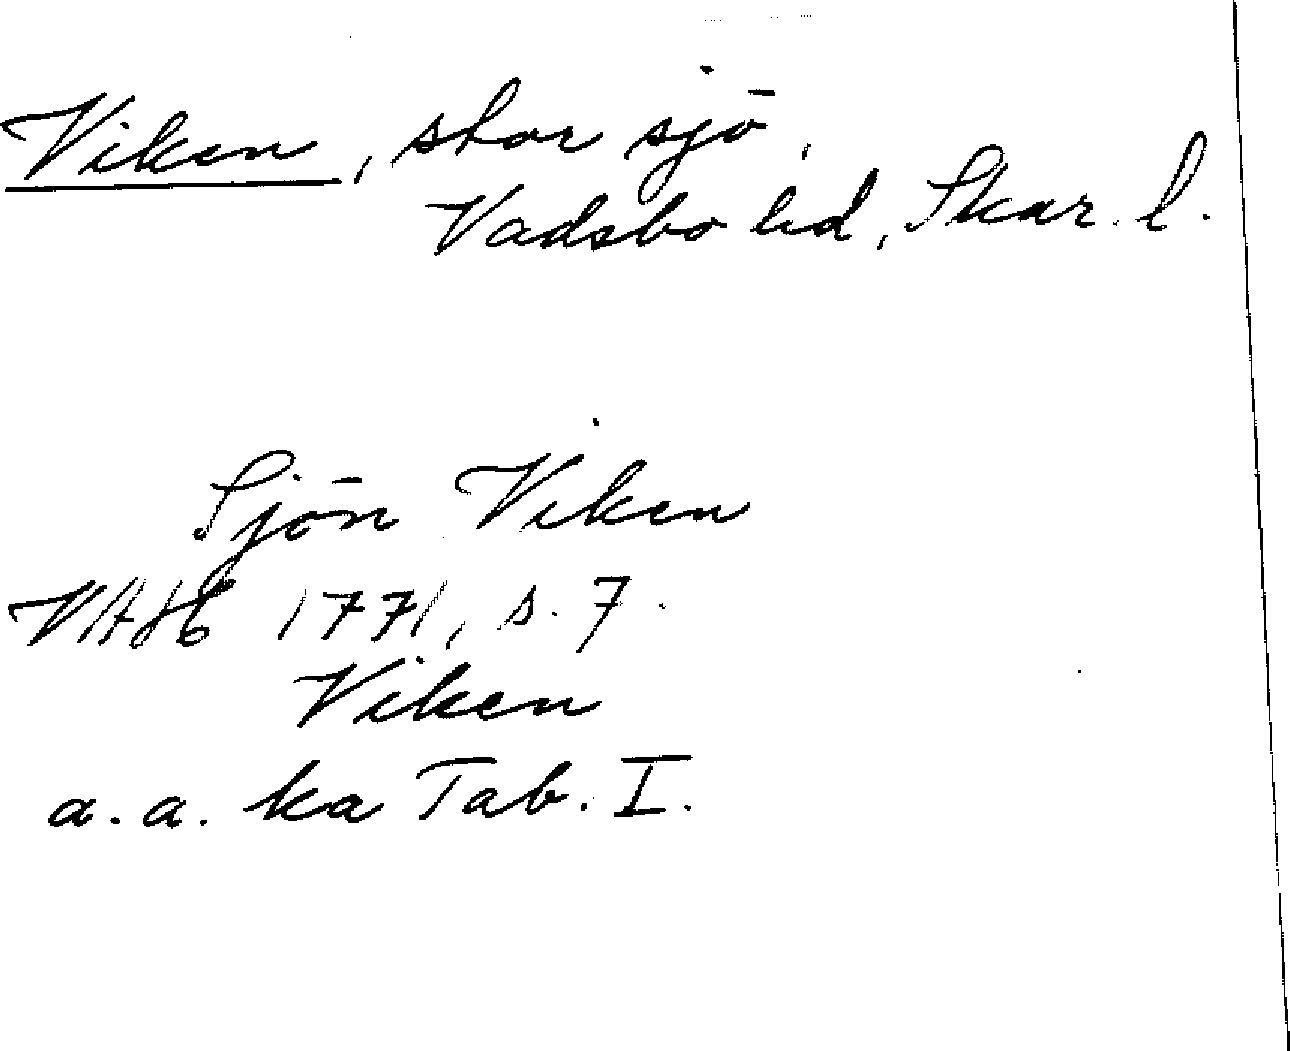 Viken, stor sjö,
Vadsbo hd, Skar. l.
Sjön Viken
VAH 1771, s. 7.
Viken
a. a. ka Tab. I.